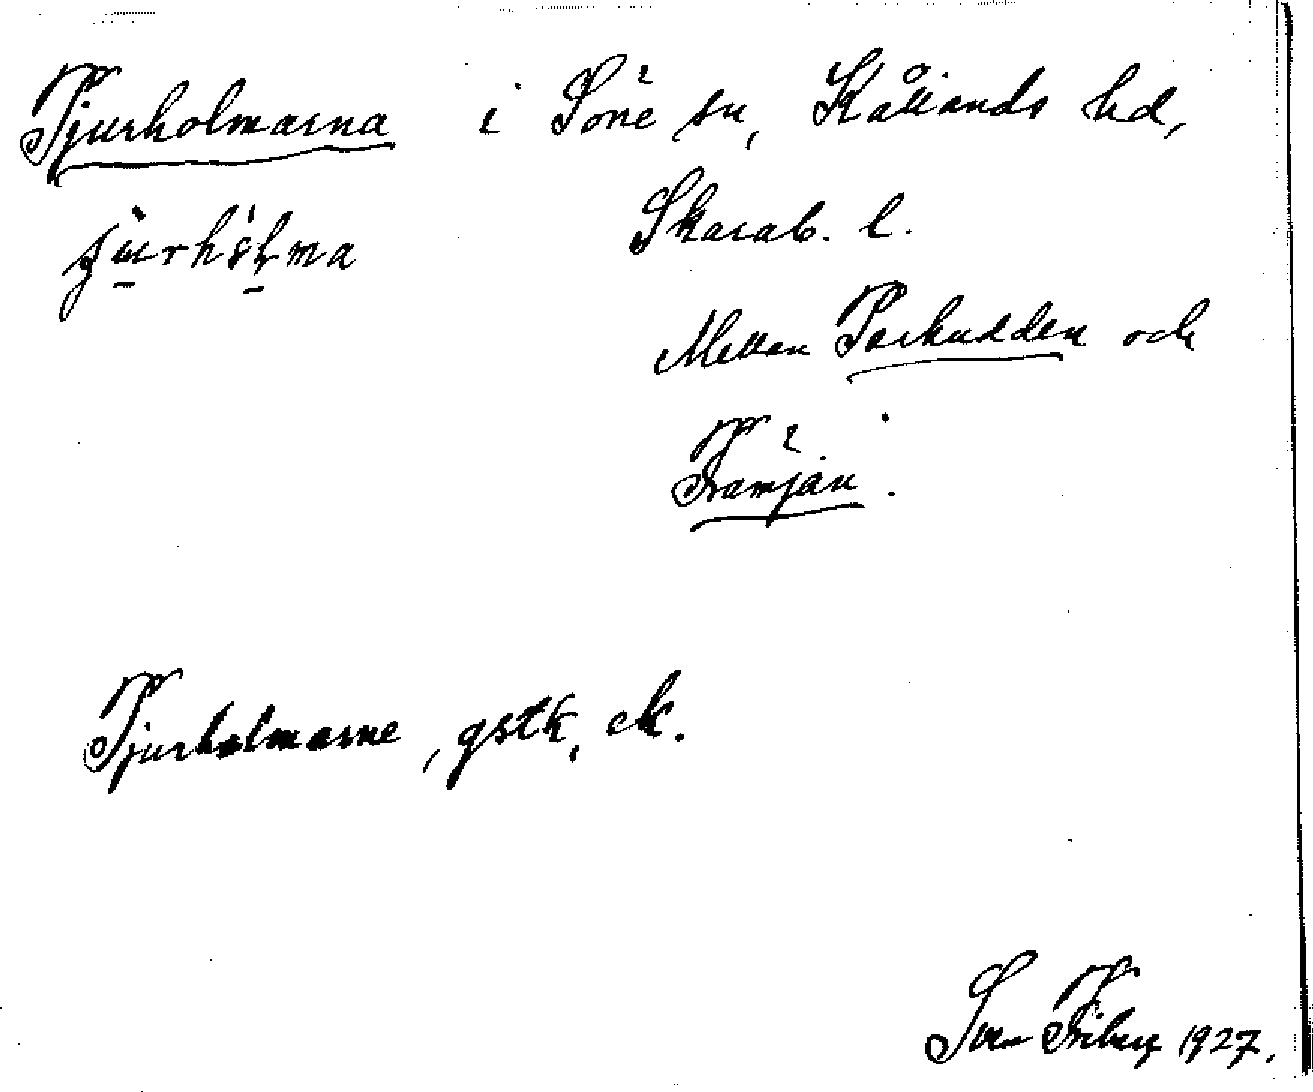 Tjurholmarna i Söne sn, Kållands hd,
Skarab. l.
Mellan Torhudden och
Framjän.
Tjurholmarne, gstk, ek.
Sven Friberg 1927.